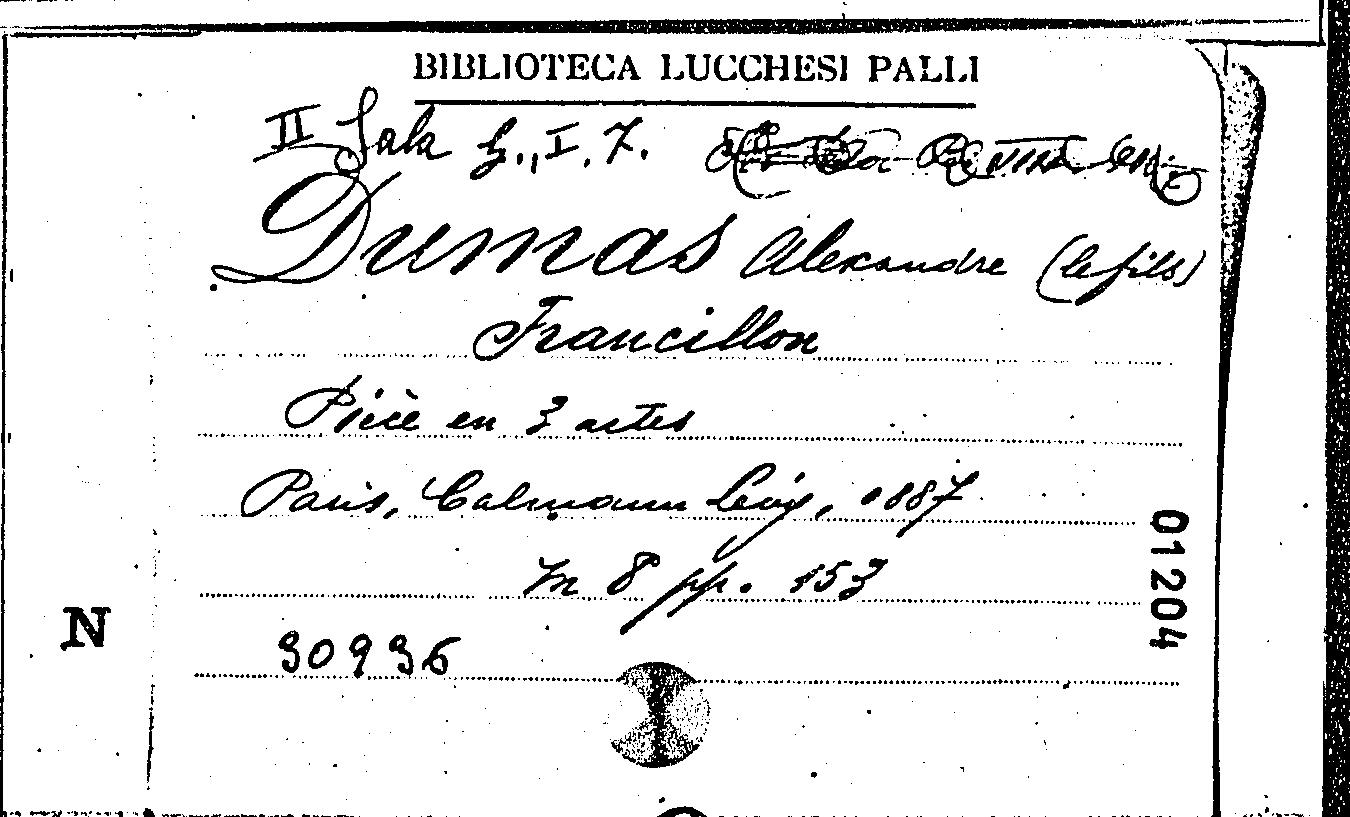 BIBLIOTECA LUCCHESI PALLI
II Sala G., I. 7.
Dumas Alexandre (le fils)
Francillon
Pièce en 3 actes
Paris, Calmann Lévy, 1887
In 8 pp. 153
30936
01204
N